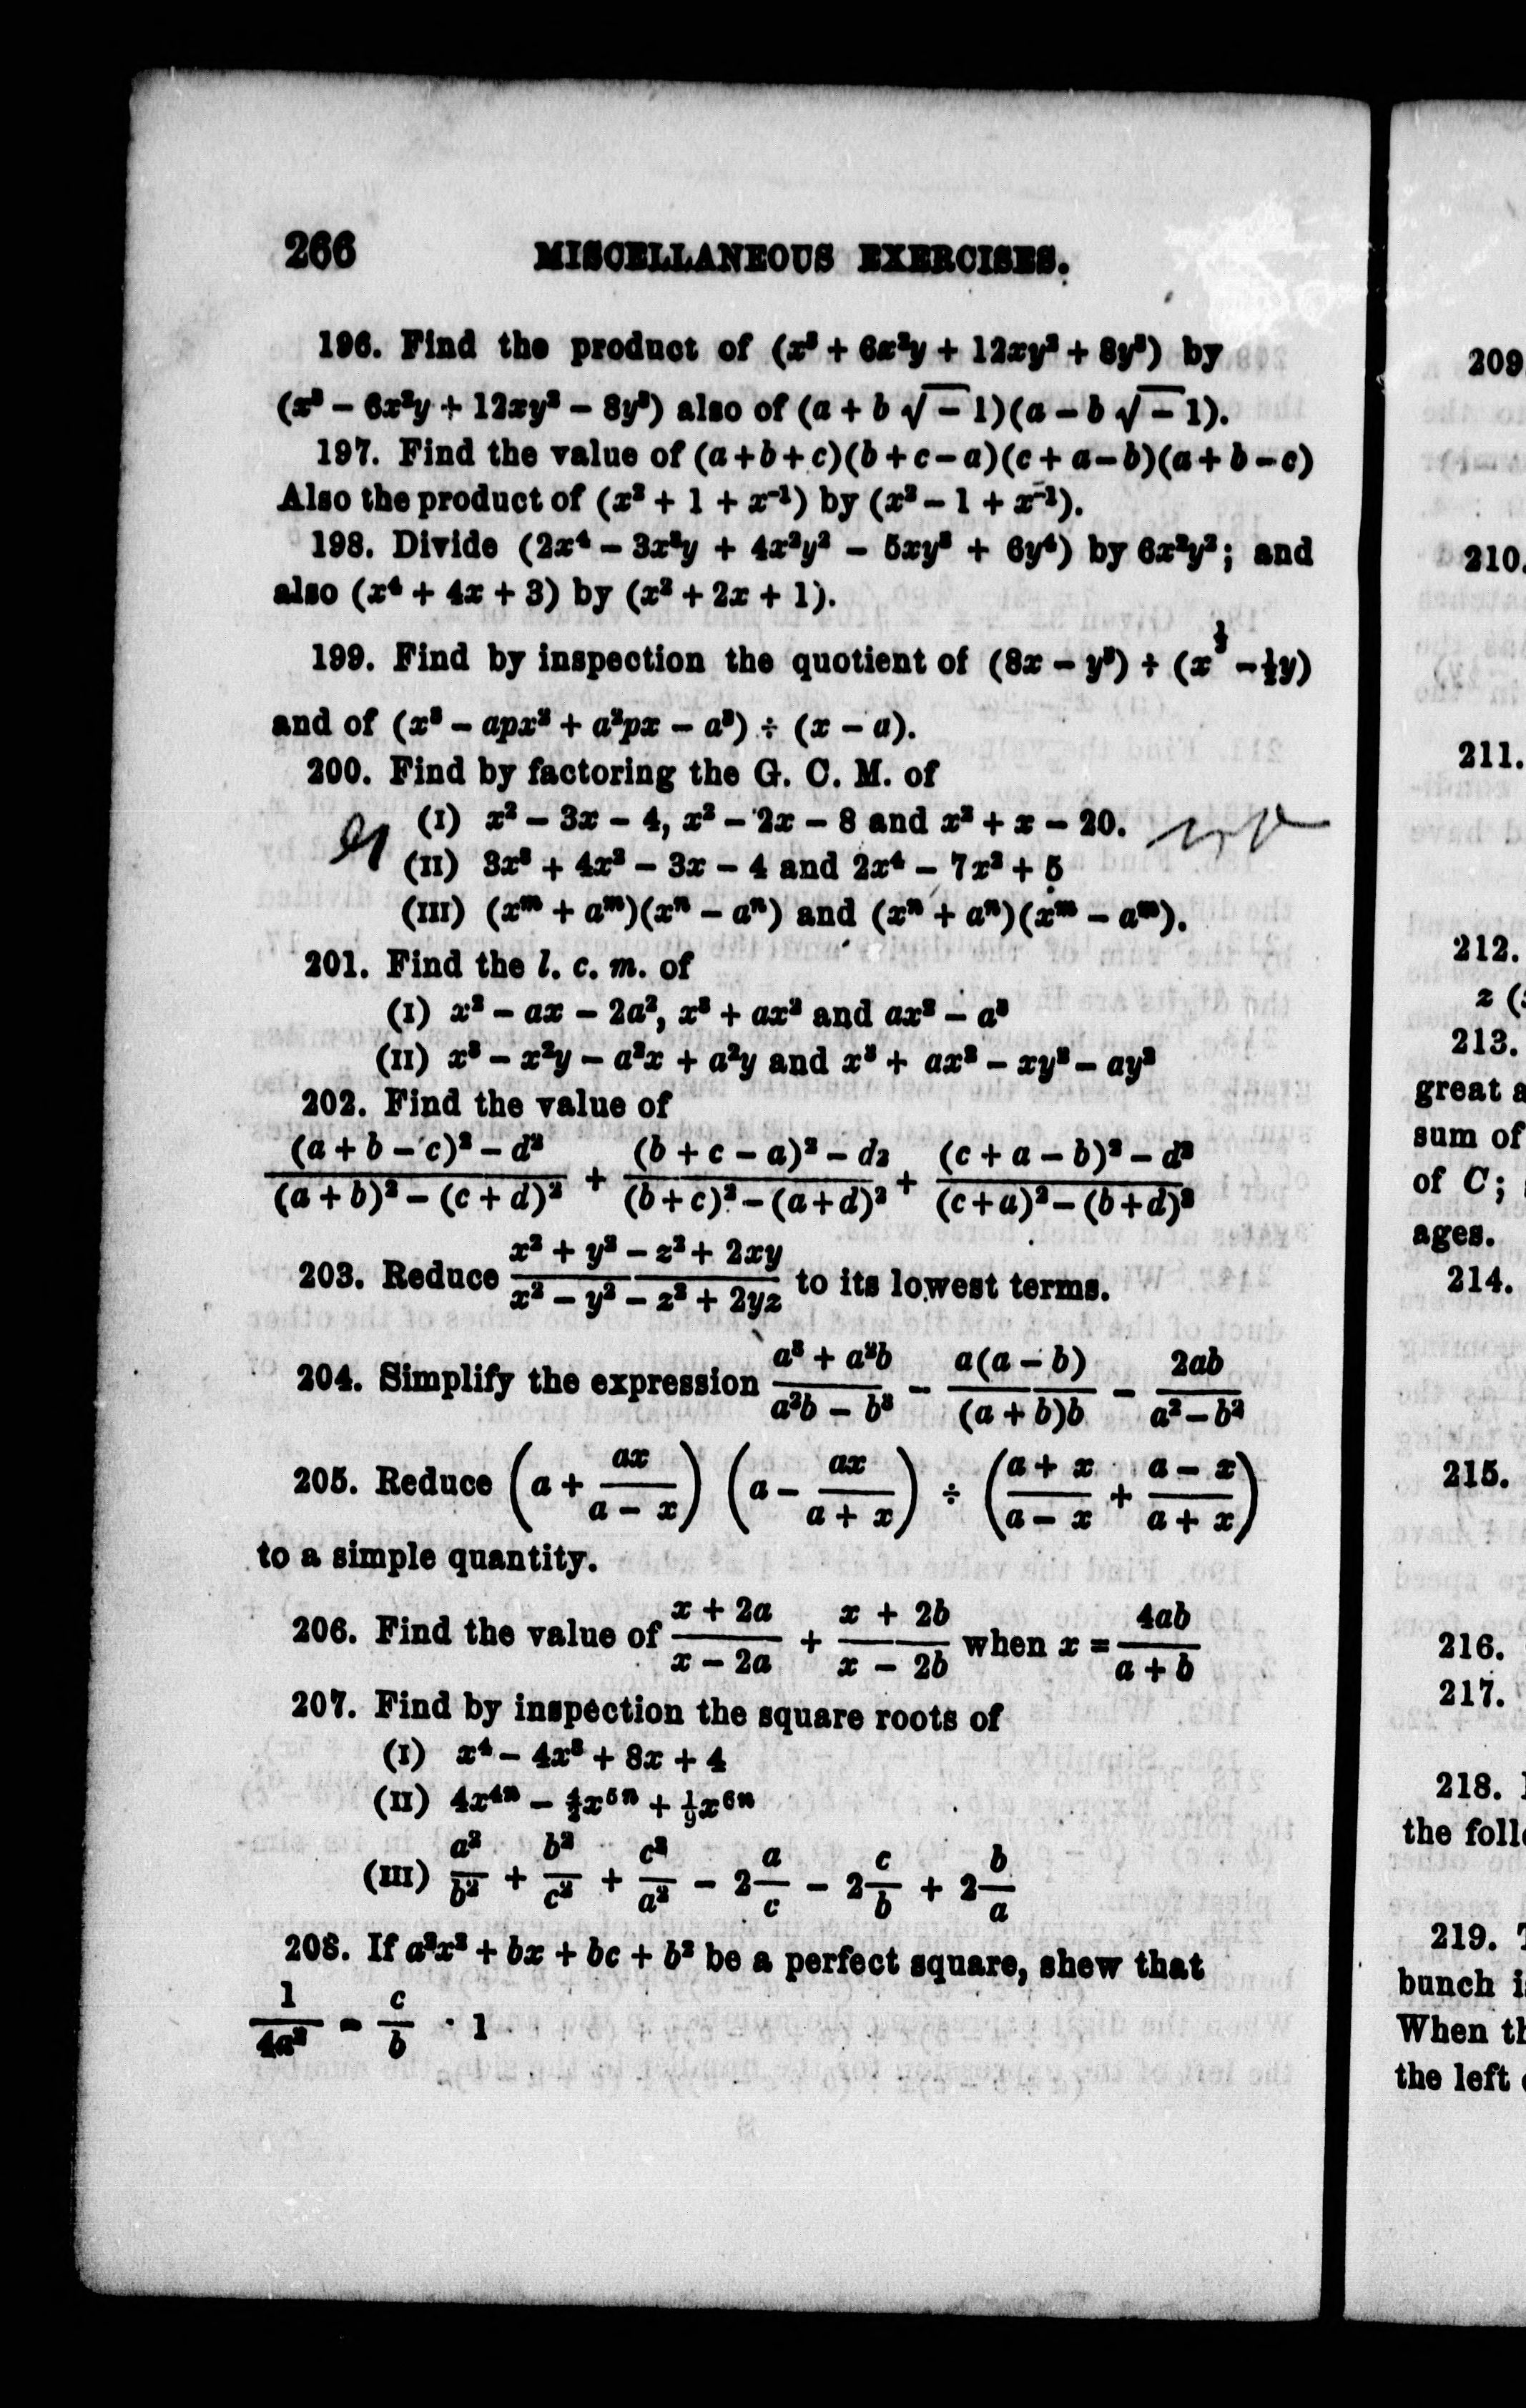 266 MISCELLANEOUS EXERCISES.
196. Find the product of (x³ + 6x²y + 12xy² + 8y³) by
(x³ – 6x²y + 12xy² – 8y³) also of (a + b √–1)(a – b √–1).
197. Find the value of (a+b+c)(b+c–a)(c+a–b)(a+b–c)
Also the product of (x² + 1 + x⁻¹) by (x² – 1 + x⁻¹).
198. Divide (2x⁴ – 3x³y + 4x²y² – 5xy³ + 6y⁴) by 6x²y²; and
also (x⁴ + 4x + 3) by (x² + 2x + 1).
199. Find by inspection the quotient of (8x – y³) ÷ (x^⅓ – ½y)
and of (x³ – apx² + a²px – a³) ÷ (x – a).
200. Find by factoring the G. C. M. of
(I) x² – 3x – 4, x² – 2x – 8 and x² + x – 20.
(II) 3x³ + 4x² – 3x – 4 and 2x⁴ – 7x² + 5
(III) (xᵐ + aᵐ)(xⁿ – aⁿ) and (xⁿ + aⁿ)(xᵐ – aᵐ).
201. Find the l. c. m. of
(I) x² – ax – 2a², x³ + ax² and ax² – a³
(II) x³ – x²y – a²x + a²y and x³ + ax² – xy² – ay²
202. Find the value of
(a + b – c)² – d² / (a + b)² – (c + d)² + (b + c – a)² – d2 / (b + c)² – (a + d)² + (c + a – b)² – d² / (c + a)² – (b + d)²
203. Reduce x² + y² – z² + 2xy / x² – y² – z² + 2yz to its lowest terms.
204. Simplify the expression a³ + a²b / a²b – b³ – a(a – b) / (a + b)b – 2ab / a² – b²
205. Reduce (a + ax / a – x) (a – ax / a + x) ÷ (a + x / a – x + a – x / a + x)
to a simple quantity.
206. Find the value of x + 2a / x – 2a + x + 2b / x – 2b when x = 4ab / a + b
207. Find by inspection the square roots of
(I) x⁴ – 4x³ + 8x + 4
(II) 4x⁴ⁿ – 4/3x⁵ⁿ + 1/9x⁶ⁿ
(III) a² / b² + b² / c² + c² / a² – 2 a / c – 2 c / b + 2 b / a
208. If a²x² + bx + bc + b² be a perfect square, shew that
1 / 4a² – c / b · 1
209
210.
211.
212.
z (
213.
great a
sum of
of C;
ages.
214.
215.
216.
217.
218.
the foll
219.
bunch i
When th
the left